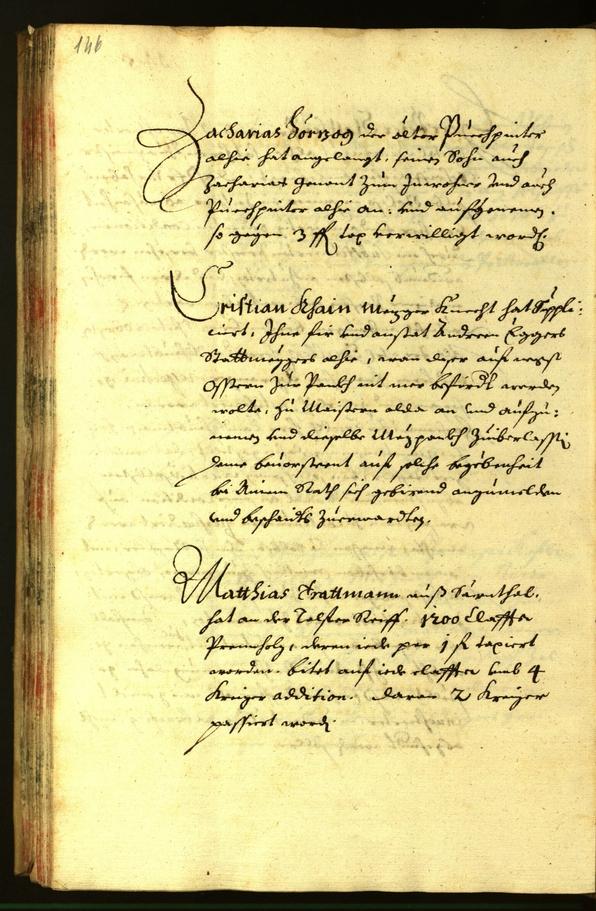 146
Zacharias Hörzog der elter Puechpinter
alhie hat angelangt, seinen Sohn auch
Zacharias genant zum Inwohner und auch
Puechpinter alhie an: und aufzenemen.
so gegen 3 ff tax verwilligt worden.
Cristian Khain Mezger Knecht hat Suppli:
ciert, Ihne für und anstat Andreen Eggers
Stattmezgers alhie, wan diser auf negst
Osstern zur Pankh nit mer befördt werden
wolte, zu Maistern alda an und aufzu:
nemen und dieselbe Mezpankh zuiberlassen
deme bevorsteent auf solche begebenheit
bei Ainem Rath sich gebirend anzumelden
und beschaidts zuerwardten.
Matthias Trattmann auß Särnthal.
hat an der Talfer Reiff. 1200 Claffter
Prennholz, deren iede per 1 fl taxiert
worden. bitet auf iede claffter umb 4
Kreizer addition. daran 2 Kreizer
passiert worden.